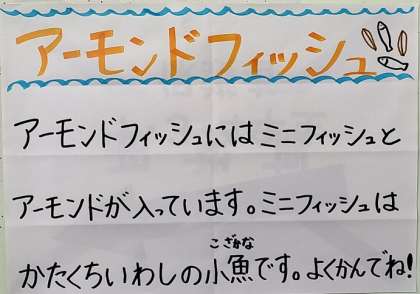 アーモンドフィッシュ
アーモンドフィッシュにはミニフィッシュと
アーモンドが入っています。ミニフィッシュは
こざかな
かたくちいわしの小魚です。よくかんでね!